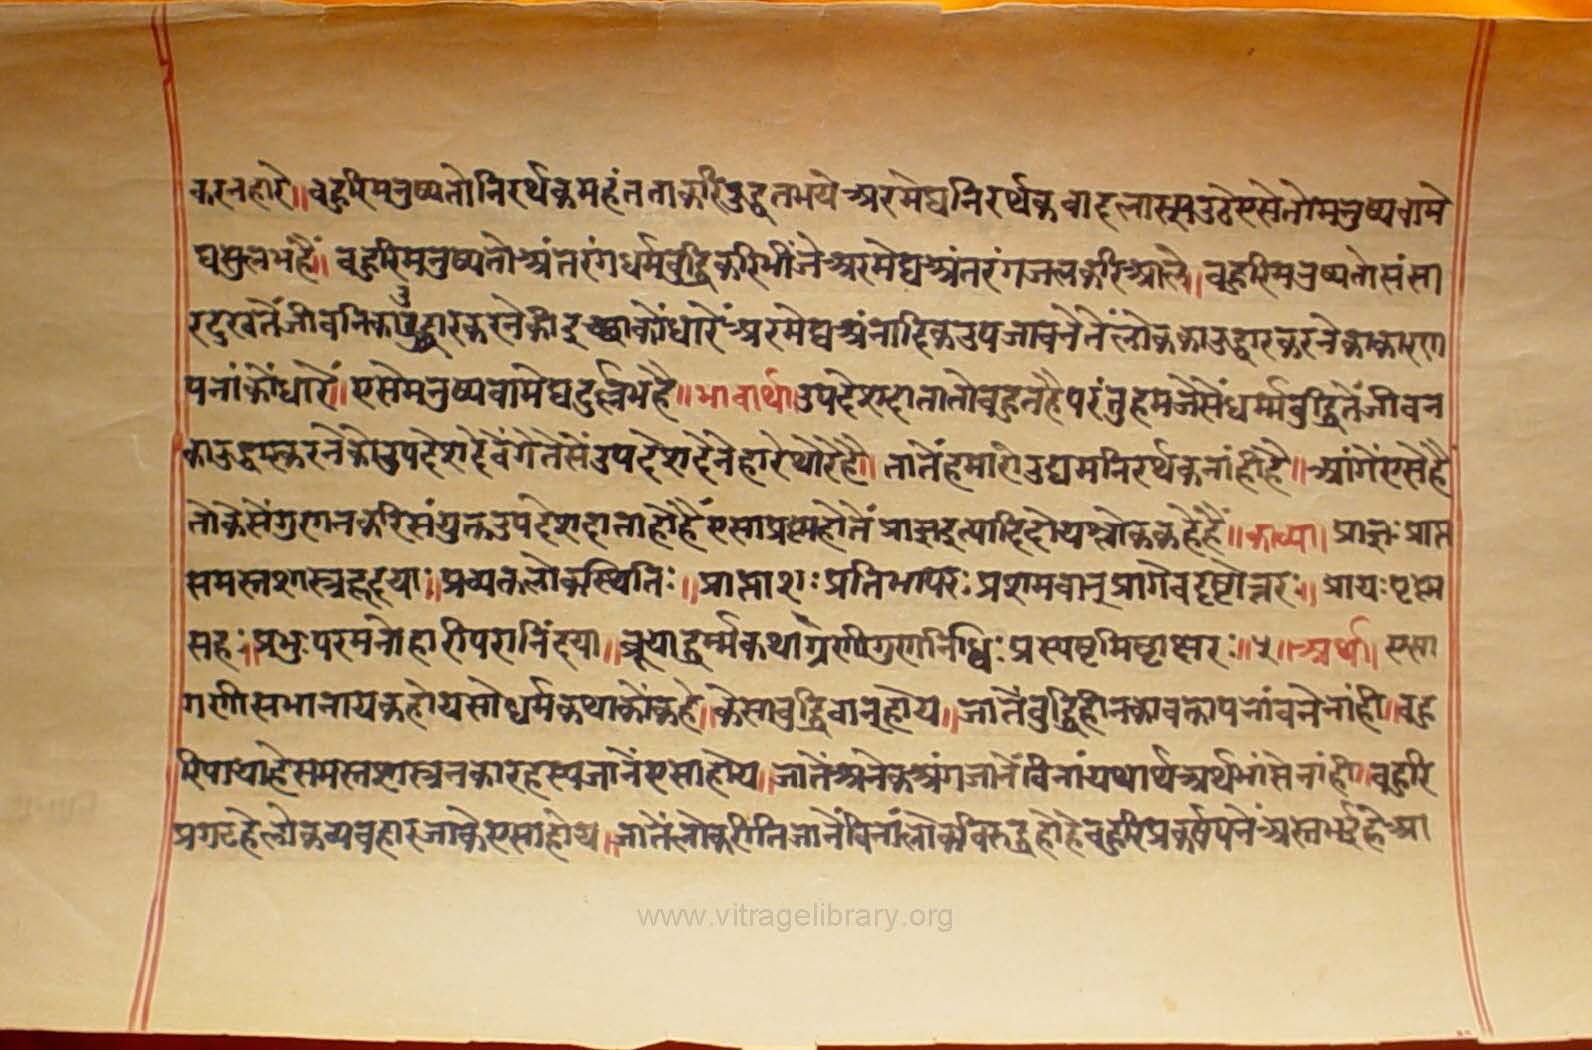 करनहारे॥ बहुरि मनुष्य तो निरर्थक महंतता करि उद्धत भये अर मेघ निरर्थक बादला उठे एसे तो मनुष्य वा मे
घ सुलभ है॥ बहुरि मनुष्य तो अंतरंग धर्मबुद्धि करि भींजे अर मेघ अंतरंग जल करि आले॥ बहुरि मनुष्य तो संसा
र दुखतें जीवनिका उद्धार करनेकी इच्छाकों धारें अर मेघ अंनादिक उपजावनेतें लोकका उद्धार करनेका कारण
पनांकों धारें॥ एसे मनुष्य वा मेघ दुर्ल्लभ है॥ भावार्थ॥ उपदेशदाता तो बहुत है परंतु हम जैसें धर्म्मबुद्धितें जीवन
का उद्धार करनेकों उपदेश देवेंगे तैसें उपदेश देनेहारे थोरे है॥ तातें हमारो उद्यम निरर्थक नांही है॥ आंगें एसे है
तो कैसें गुणन करि संयुक्त उपदेशदाता हो है एसा प्रश्न होतें प्राज्ञ इत्यादि दोय श्लोक कहै हैं॥ काव्य॥ प्राज्ञः प्राप्त
समस्तशास्त्रहृदयः॥ प्रव्यक्तलोकस्थितिः॥ प्रास्ताशः प्रतिभापरः प्रशमवान् प्रागेव दृष्टोत्तरः॥ प्रायः प्रश्न
सहः॥ प्रभुः परमनोहारी परानिंदया॥ ब्रूयाद्धर्म्मकथां गणी गुणनिधिः प्रस्पष्टमिष्टाक्षरः॥५॥ अर्थ॥ एसा
गणी सभानायक होय सो धर्मकथाकों कहै॥ कैसा बुद्धिवान् होय॥ जातें बुद्धिहीनका वक्तापनां बनें नांही॥ बहु
रि पाया है समस्त शास्त्रनका रहस्य जानें एसा होय॥ जातें अनेक अंग जानें विनां यथार्थ अर्थ भांसे नांही॥ बहुरि
प्रगट है लोकव्यवहार जाकै एसा होय॥ जातें लोकरीति जानें विनां लोकविरुद्ध हो है बहुरि प्रकर्षपनें अस्त भई है आ
www.vitragelibrary.org